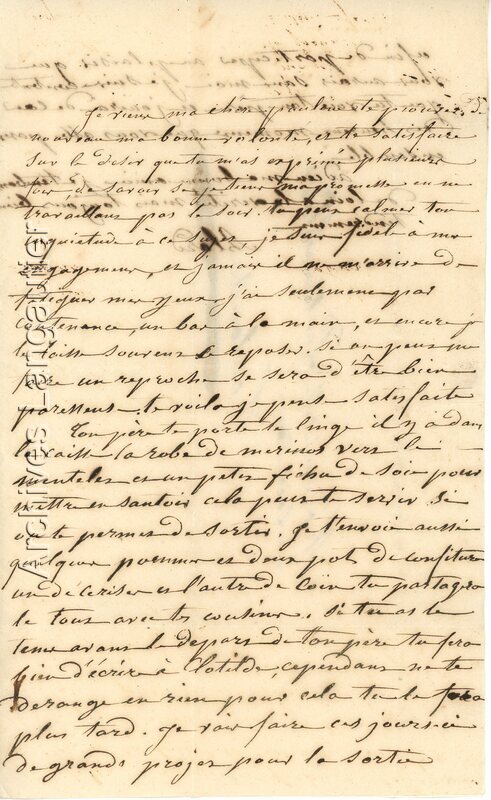 Je viens ma chère
nouveau ma bonne volonté, et te satisfaire
sur le desir que tu m'as exprimé plusieurs
fois de savoir si je tiens ma promesse en ne
travaillans pas le soir. tu peux calmer ton
inquietude à ce sujet, je suis fidel à mes
engagemens, et jamais il ne m'arrive de
fatiguer mes yeux. j'ai seulement par
contenance, un bas à la main, et encore je
le laisse souvens se reposer. si on peux me
faire un reproche se sera d'être bien
paresseuse. te voila je pense satisfaite
Ton père te porte le linge il y a dans
la caisse la robe de merinos vers la
et un petit fichu de soie pour
mettre en sautoir cela peux te servir si
on te permes de sortir. je t'envoie aussi
quelques pommes et deux pots de confiture
un de cerises et l'autre de coin tu partagera
le tous avec tes cousines. si tu as le
tems avans le depars de ton père tu fera
bien d'écrire à Clotilde, cependans ne te
derange en rien pour cela tu le fera
plus tard. Je vais faire ces jours-ci
de grands projes pour la sortie
Archives-engautier